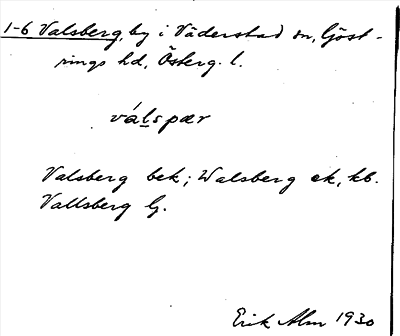 1-6 Valsberg, by i Väderstad sn, Göst-
rings hd, Österg. l.
válspær
Valsberg bek; Walsberg ek, kb.
Vallsberg lj.
Erik Alm 1930